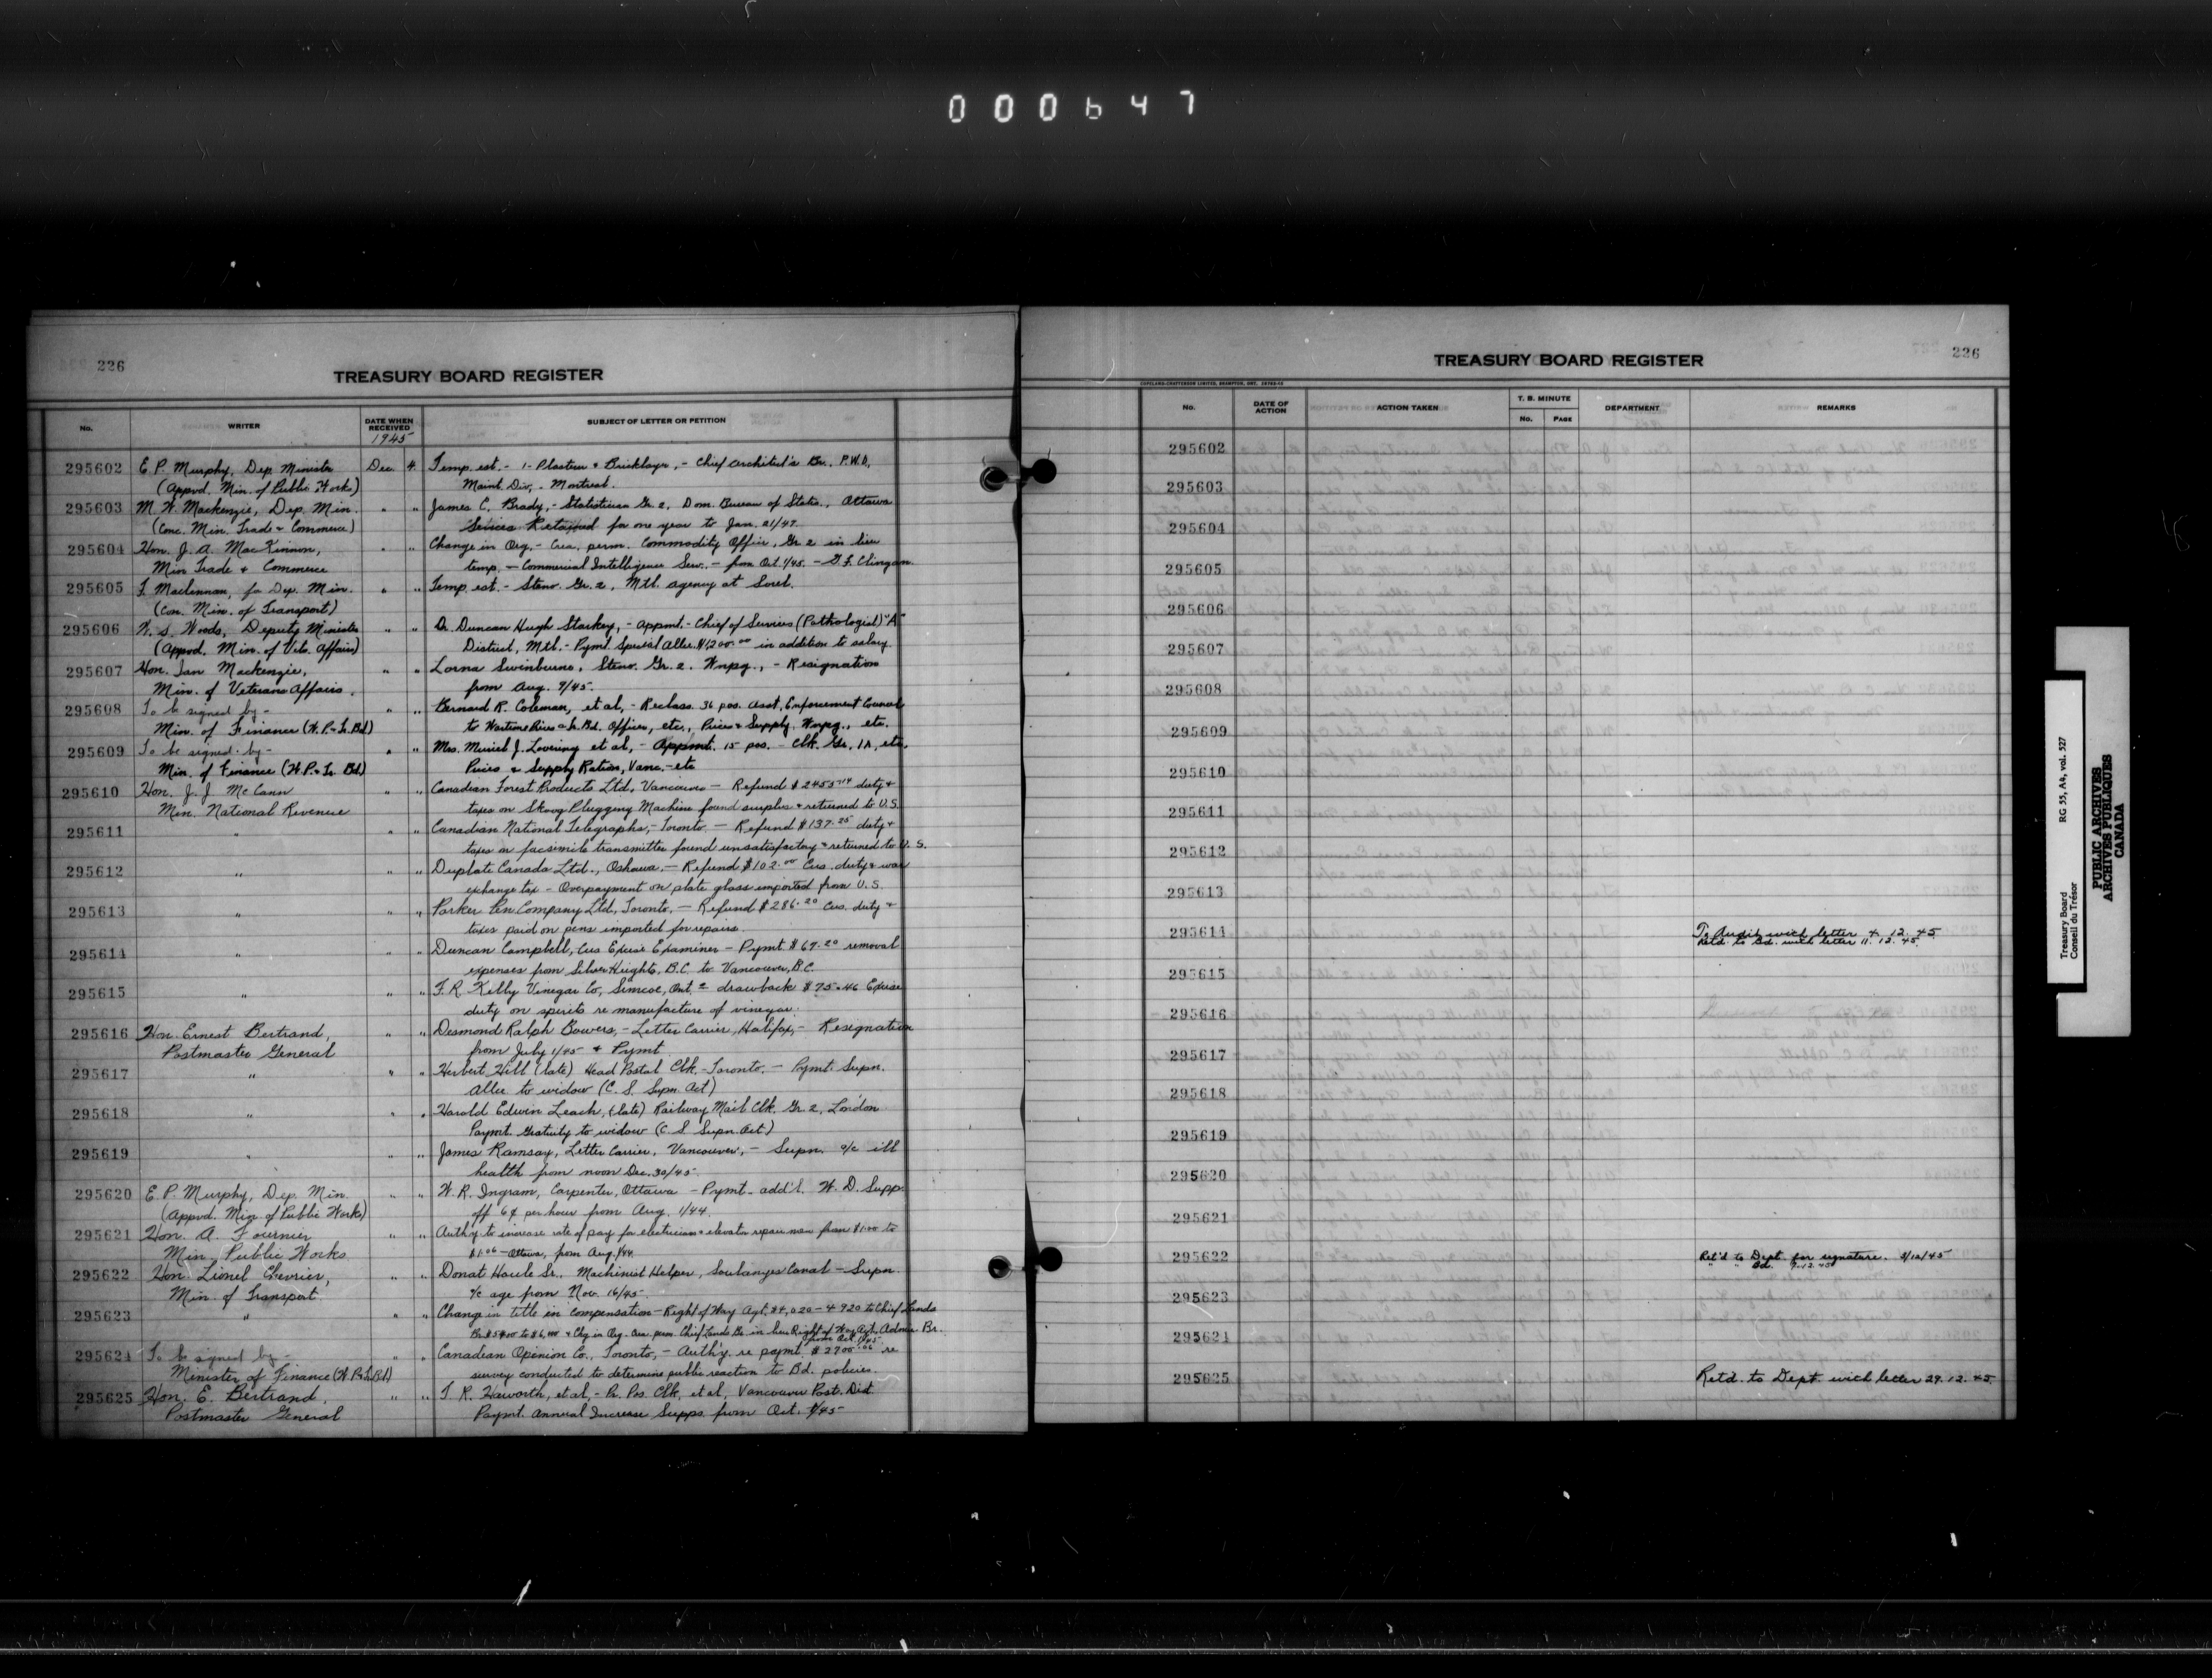 000647
226
TREASURY BOARD REGISTER
No. WRITER DATE WHEN RECEIVED SUBJECT OF LETTER OR PETITION
1945
295602 E. P. Murphy, Dep. Minister Dec. 4 Temp. est. - 1 - Plasterer & Bricklayer, - Chief Architect's Br., P.W.D,
(Appvd. Min. of Public Works) Maint. Div, - Montreal.
295603 M. W. Mackenzie, Dep. Min. " " James C. Brady, - Statistician Gr. 2, Dom. Bureau of Statis., Ottawa
(Conc. Min. Trade & Commerce) Services Retained for one year to Jan. 21/47.
295604 Hon. J. A. MacKinnon, " " Change in Org. - Crea. perm. Commodity Officer, Gr. 2 in lieu
Min Trade & Commerce temp. - Commercial Intelligence Serv. - from Oct. 1/45. - G. F. Clingan.
295605 F. Maclennan, for Dep. Min. " " Temp. est. - Steno. Gr. 2, Mtl. agency at Sorel.
(Con. Min. of Transport)
295606 W. S. Woods, Deputy Minister " " Dr. Duncan Hugh Starkey, - Appmt. - Chief of Services (Pathologist) "A"
(Appvd. Min. of Vets. Affairs) District, Mtl. - Pymt. Special Allce. $1200.00 in addition to salary
295607 Hon. Ian Mackenzie, " " Lorna Swinburne, Steno. Gr. 2. Wnpg., - Resignation
Min. of Veterans Affairs. from Aug. 9/45.
295608 To be signed by - " " Bernard R. Coleman, et al, - Reclass. 36 pos. Asst. Enforcement Counsel
Min. of Finance (W.P. & Tr. Bd.) to Wartime Prices & Tr. Bd. Officer, etc., Prices & Supply. Wnpg., etc.
295609 To be signed by - " " Mrs. Muriel J. Lovering et al, - Appmt. 15 pos. - Clk. Gr. 1A, etc.
Min. of Finance (W.P. & Tr. Bd.) Prices & Supply Ration, Vanc. - etc
295610 Hon. J. J. McCann " " Canadian Forest Products Ltd, Vancouver - Refund $2455.14 duty &
Min. National Revenue taxes on Skoog Plugging Machine found surplus & returned to U.S.
295611 " " " Canadian National Telegraphs, - Toronto - Refund $137.25 duty &
taxes on facsimile transmitter found unsatisfactory & returned to U.S.
295612 " " " Duplate Canada Ltd., Oshawa, - Refund $102.00 Cus. duty & war
exchange tax - Overpayment on plate glass imported from U.S.
295613 " " " Parker Pen Company Ltd, Toronto, - Refund $286.20 Cus. duty &
taxes paid on pens imported for repairs.
295614 " " " Duncan Campbell, Cus Excise Examiner - Pymt $67.20 removal
expenses from Silver Heights, B.C. to Vancouver, B.C.
295615 " " " F. R. Kelly Vinegar Co, Simcoe, Ont. - drawback $75.46 Excise
duty on spirits re manufacture of vinegar.
295616 Hon. Ernest Bertrand, " " Desmond Ralph Bowers, - Letter Carrier, Halifax, - Resignation
Postmaster General from July 1/45 & Pymt
295617 " " " Herbert Hill (late) Head Postal Clk. - Toronto. - Pymt. Supn.
Allce to widow (C. S. Supn. Act)
295618 " " " Harold Edwin Leach, (late) Railway Mail Clk. Gr. 2, London
Paymt. Gratuity to widow (C. S. Supn. Act)
295619 " " " James Ramsay, Letter Carrier, Vancouver, - Supn. a/c ill
health from noon Dec. 30/45.
295620 E. P. Murphy, Dep. Min. " " W. R. Ingram, Carpenter, Ottawa - Pymt. add'l. W. D. Supp.
(Appvd. Min. of Public Works) of 6¢ per hour from Aug. 1/44.
295621 Hon. A. Fournier " " Auth'y to increase rate of pay for electricians & elevator repair men from $1.00 to
Min. Public Works $1.06 - Ottawa, from Aug. 1/44.
295622 Hon. Lionel Chevrier, " " Donat Houle Sr. Machinist Helper, Soulanges Canal - Supn.
Min. of Transport. a/c age from Nov. 16/45.
295623 " " " Change in title in compensation - Right of Way Agt. $4,020 - 4920 to Chief Lands
Br. $5400 to $6,000 & Chg in Org. Crea. perm. Chief Lands Br. in lieu Right of Way Agt. Admin Br.
from Oct. 1/45
295624 To be signed by - " " Canadian Opinion Co., Toronto, - Auth'y. re paymt. $2700.00 re
Minister of Finance (W.P. & Tr. Bd.) survey conducted to determine public reaction to Bd. policies.
295625 Hon. E. Bertrand, " " T. R. Haworth, et al, - Pr. Pos. Clk, et al, Vancouver Post. Dist.
Postmaster General Paymt. Annual Increase Supps. from Oct. 1/45
226
TREASURY BOARD REGISTER
COPELAND-CHATTERSON LIMITED, BRAMPTON, ONT.
No. DATE OF ACTION ACTION TAKEN T. B. MINUTE No. PAGE DEPARTMENT REMARKS
295602
295603
295604
295605
295606
295607
295608
295609
295610
295611
295612
295613
295614 To Audit with letter 4. 12. 45
Retd. to Bd. with letter 11. 12. 45.
295615
295616
295617
295618
295619
295620
295621
295622 Ret'd to Dept. for signature. 5/12/45
" " Bd. 7.12.45
295623
295624
295625 Retd. to Dept with letter 29. 12. 45.
Treasury Board RG 55, A4, vol. 527
Conseil du Trésor
PUBLIC ARCHIVES
ARCHIVES PUBLIQUES
CANADA